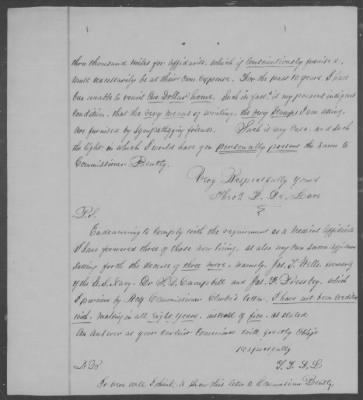 thou thousand miles for affidavits, which if conscientiously pursued,
must necessarily be at their own expense. For the past 10 years I have
been unable to count One Dollar! Such in fact is my present indigent
condition, that the very means of writing, the very stamps I am using,
are furnished by sympathizing friends. Such is my case, and such
the light in which I would have you personally present the same to
Commissioner Bently.
Very Respectfully yours
P.S.
Endeavoring to comply with the requirement as to
I have procured three of those now living, as also my own
setting forth the names of three more, namely, Jas. T. Wells, formerly
of the U.S. Navy, Dr. Campbell and Jas. which
I perceive by Hon Commissioner letter, I have not been credited
with, making in all eight years, instead of five, as stated
An answer at your earliest convenience will greatly oblige
respectfully
N.B.
to show this letter to Commissioner Bently.